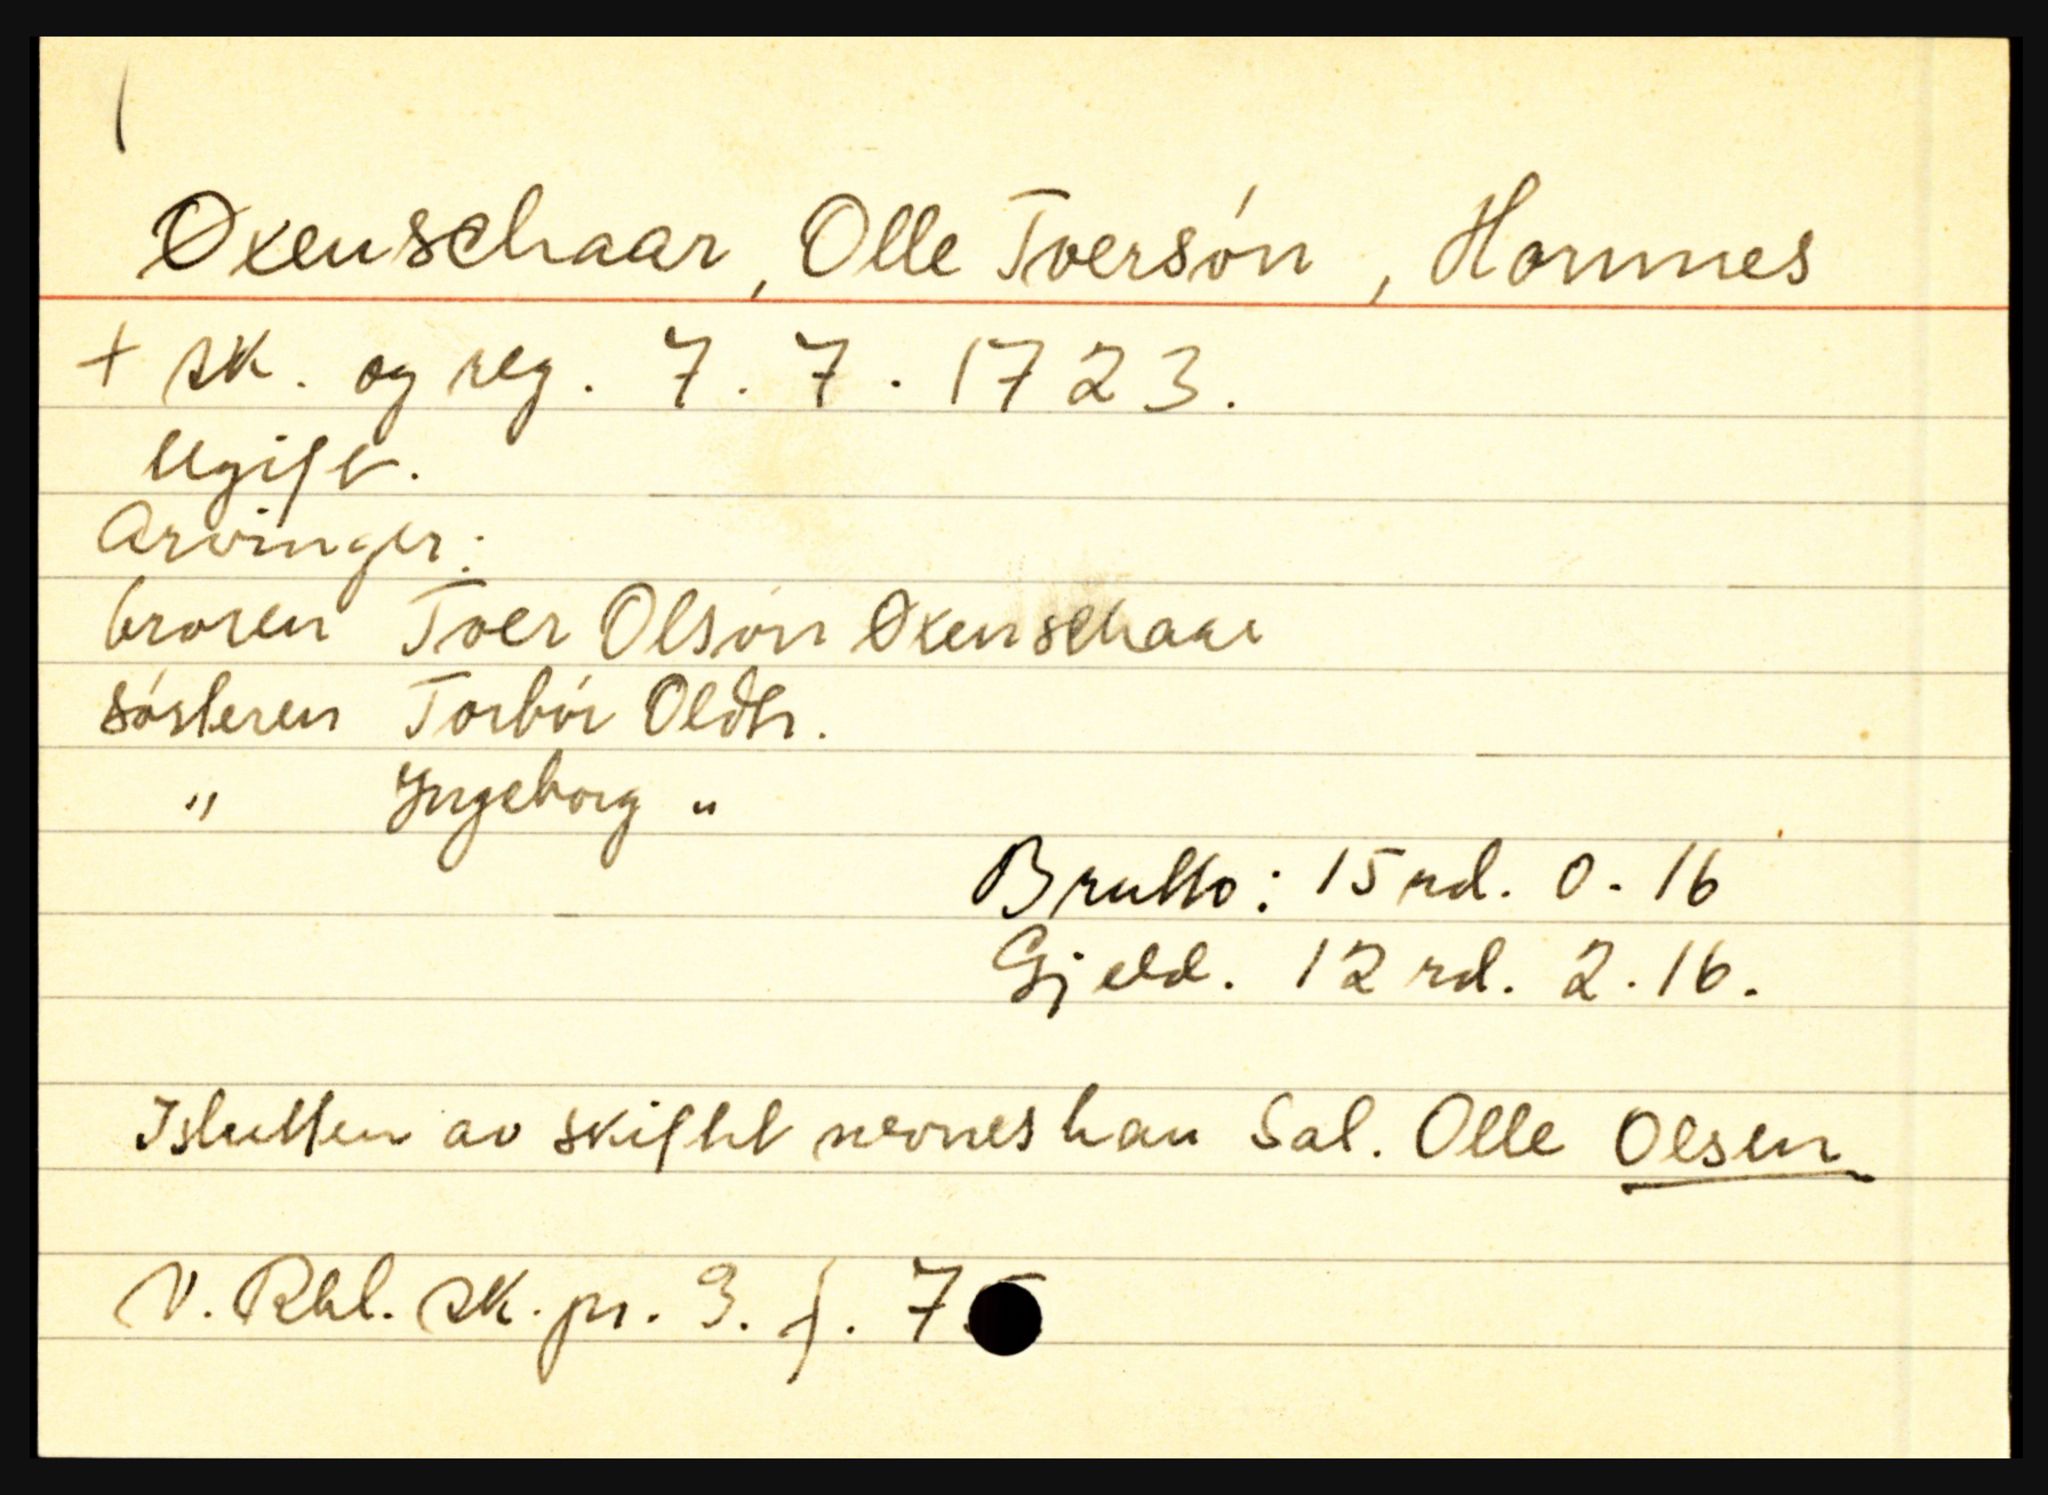 Øxenschaar, Olle Tversón, Hornnes
+ sk. og reg. 7. 7. 1723.
Ugift.
Arvinger:
broren Tver Olsón Øxenschaar
sósteren Torbór Oldtr.
" Ingeborg "
Brutto: 15 rd. 0. 16
Gjeld. 12 rd. 2. 16.
I slutten av skiftet nevnes han Sal. Olle Olsen
V. Rbl. sk. pr. 3. f. 7